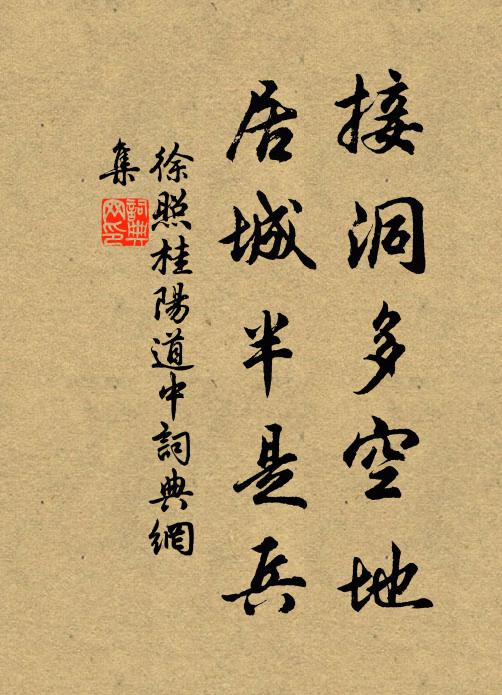 接洞多空地
居城半是兵
徐照桂陽道中詞典網
集
詞典
网印